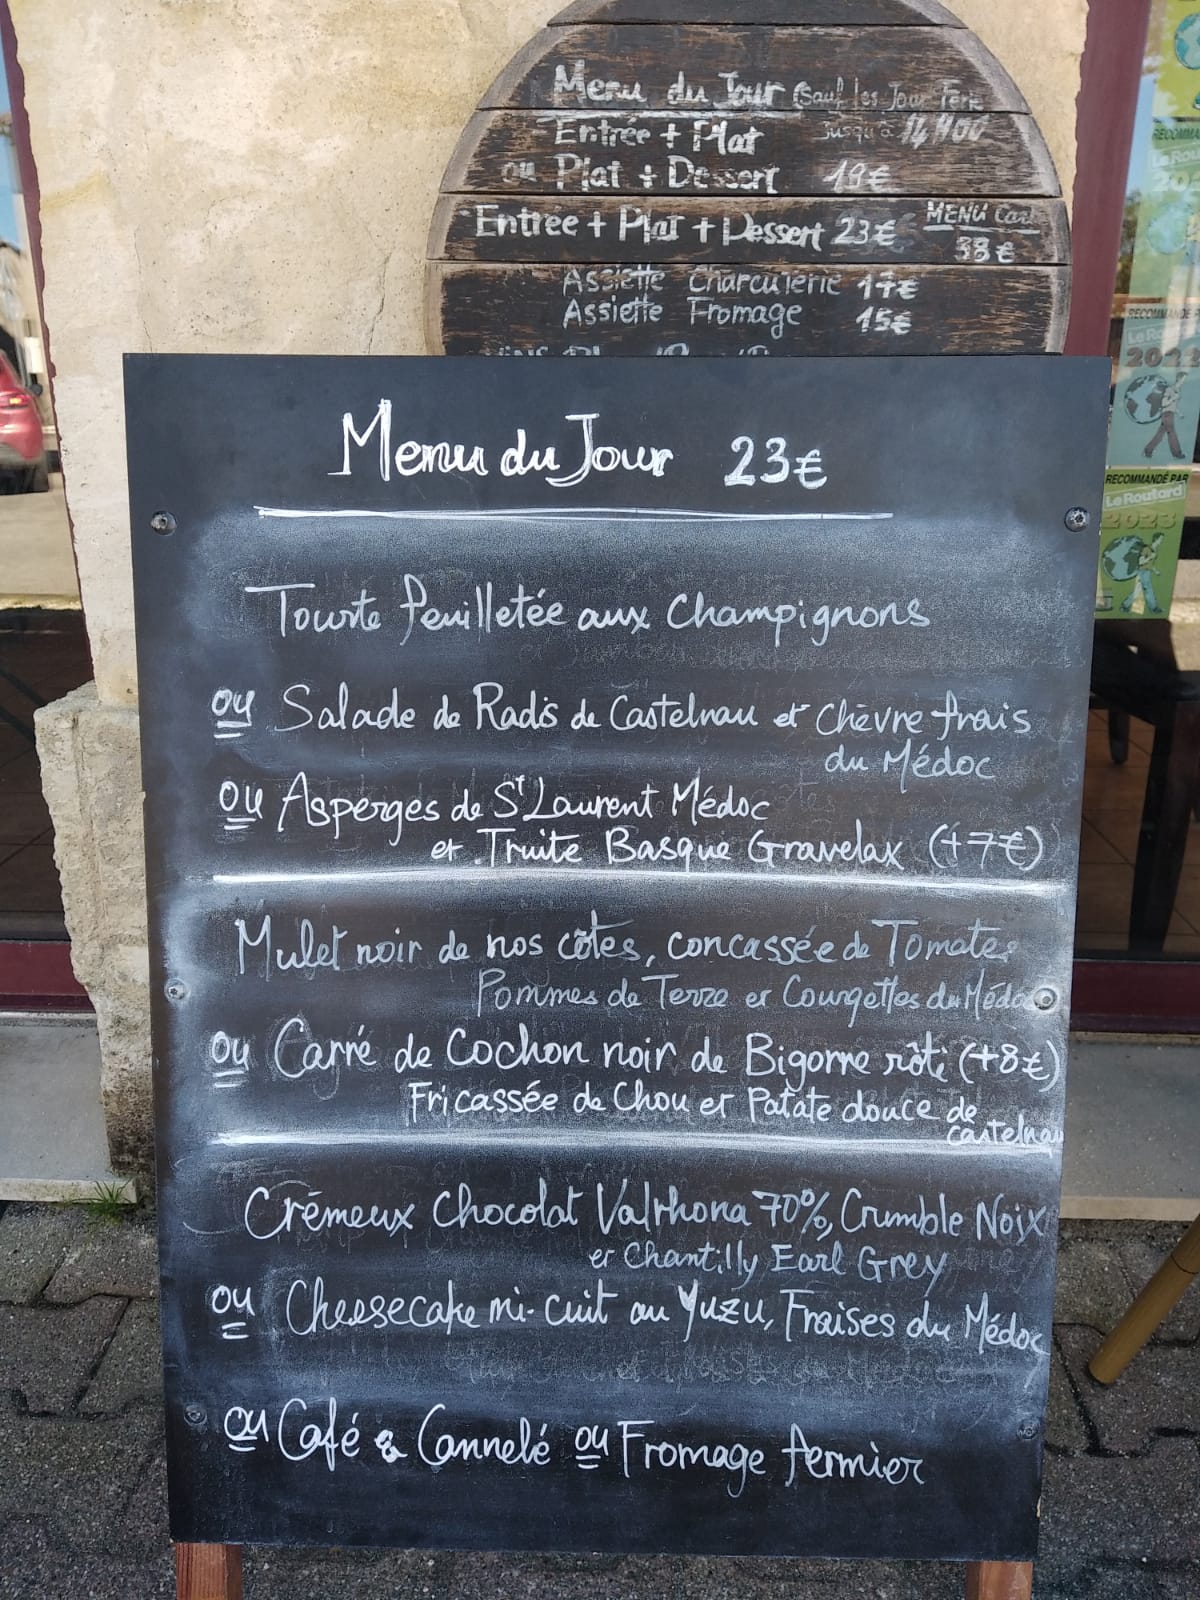 Menu du Jour (Sauf les Jour Ferié
Entrée + Plat jusqu'à 14H00
ou Plat + Dessert 19€
Entrée + Plat + Dessert 23€ MENU Carte
38€
Assiette Charcuterie 17€
Assiette Fromage 15€
Menu du Jour 23€
Tourte feuilletée aux Champignons
ou Salade de Radis de Castelnau et Chèvre frais
du Médoc
ou Asperges de St Laurent Médoc
et Truite Basque Gravelax (+7€)
Mulet noir de nos côtes, concassée de Tomates
Pommes de Terre et Courgettes du Médoc
ou Carré de Cochon noir de Bigorre rôti (+8€)
Fricassée de Chou et Patate douce de
Castelnau
Crémeux Chocolat Valrhona 70%, Crumble Noix
et Chantilly Earl Grey
ou Cheesecake mi-cuit au Yuzu, Fraises du Médoc
ou Café & Cannelé ou Fromage fermier
RECOMMANDÉ PAR
Le Routard
2023